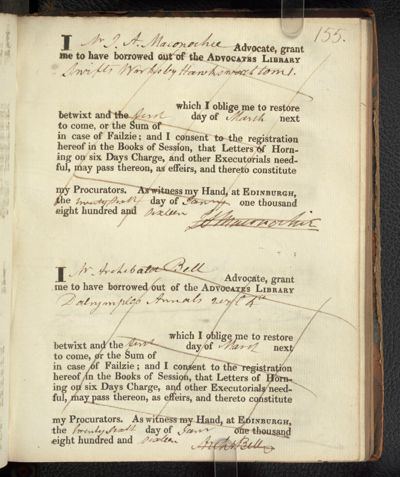 155.
I Mr J. A. Maconochie Advocate, grant
me to have borrowed out of the ADVOCATES LIBRARY
Swifts Works by Hawksworth tom 1.
which I oblige me to restore
betwixt and the first day of March next
to come, or the Sum of
in case of Failzie; and I consent to the registration
hereof in the Books of Session, that Letters of Horn-
ing on six Days Charge, and other Executorials need-
ful, may pass thereon, as effeirs, and thereto constitute
my Procurators. As witness my Hand, at EDINBURGH,
the twenty sixth day of Jany one thousand
eight hundred and sixteen
Maconochie
I Mr Archibald Bell Advocate, grant
me to have borrowed out of the ADVOCATES LIBRARY
Dalrymples Annals 4to
which I oblige me to restore
betwixt and the first day of March next
to come, or the Sum of
in case of Failzie; and I consent to the registration
hereof in the Books of Session, that Letters of Horn-
ing on six Days Charge, and other Executorials need-
ful, may pass thereon, as effeirs, and thereto constitute
my Procurators. As witness my Hand, at EDINBURGH,
the twenty sixth day of Jany one thousand
eight hundred and sixteen
Archd Bell